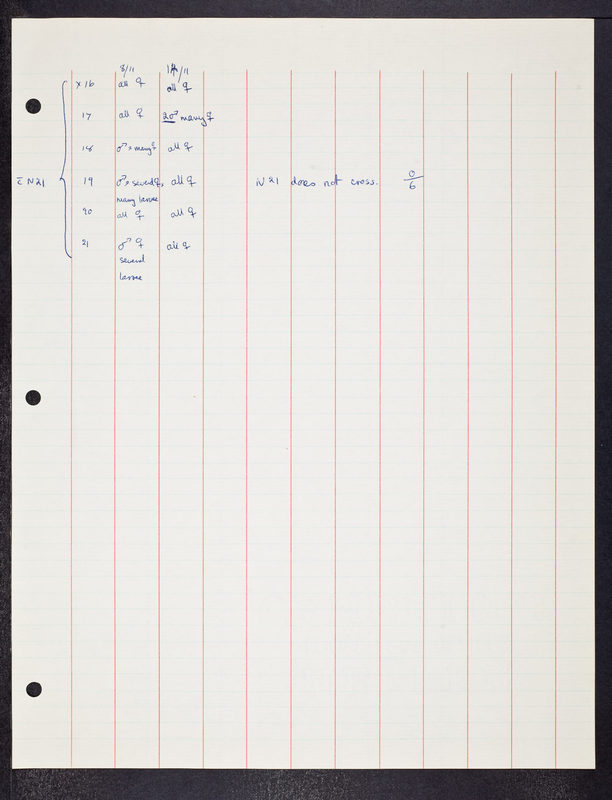 8/11 14/11
x 16 all ♀ all ♀
17 all ♀ 2♂ many ♀
18 ♂ x many ♀ all ♀
c̄ N21 19 ♂ x several ♀, all ♀ N21 does not cross. 0/6
many larvae
20 all ♀ all ♀
21 ♂ ♀ all ♀
several
larvae